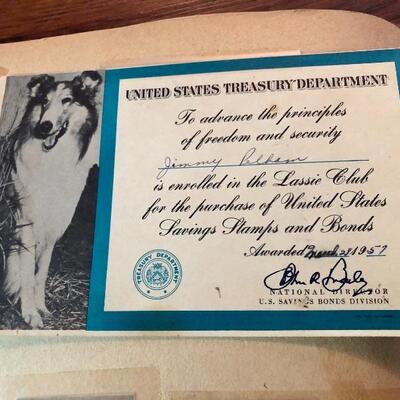 UNITED STATES TREASURY DEPARTMENT
To advance the principles
of freedom and security
Jimmy Pelham
is enrolled in the Lassie Club
for the purchase of United States
Savings Stamps and Bonds
Awarded March 28 1957
TREASURY DEPARTMENT
NATIONAL DIRECTOR
U.S. SAVINGS BONDS DIVISION